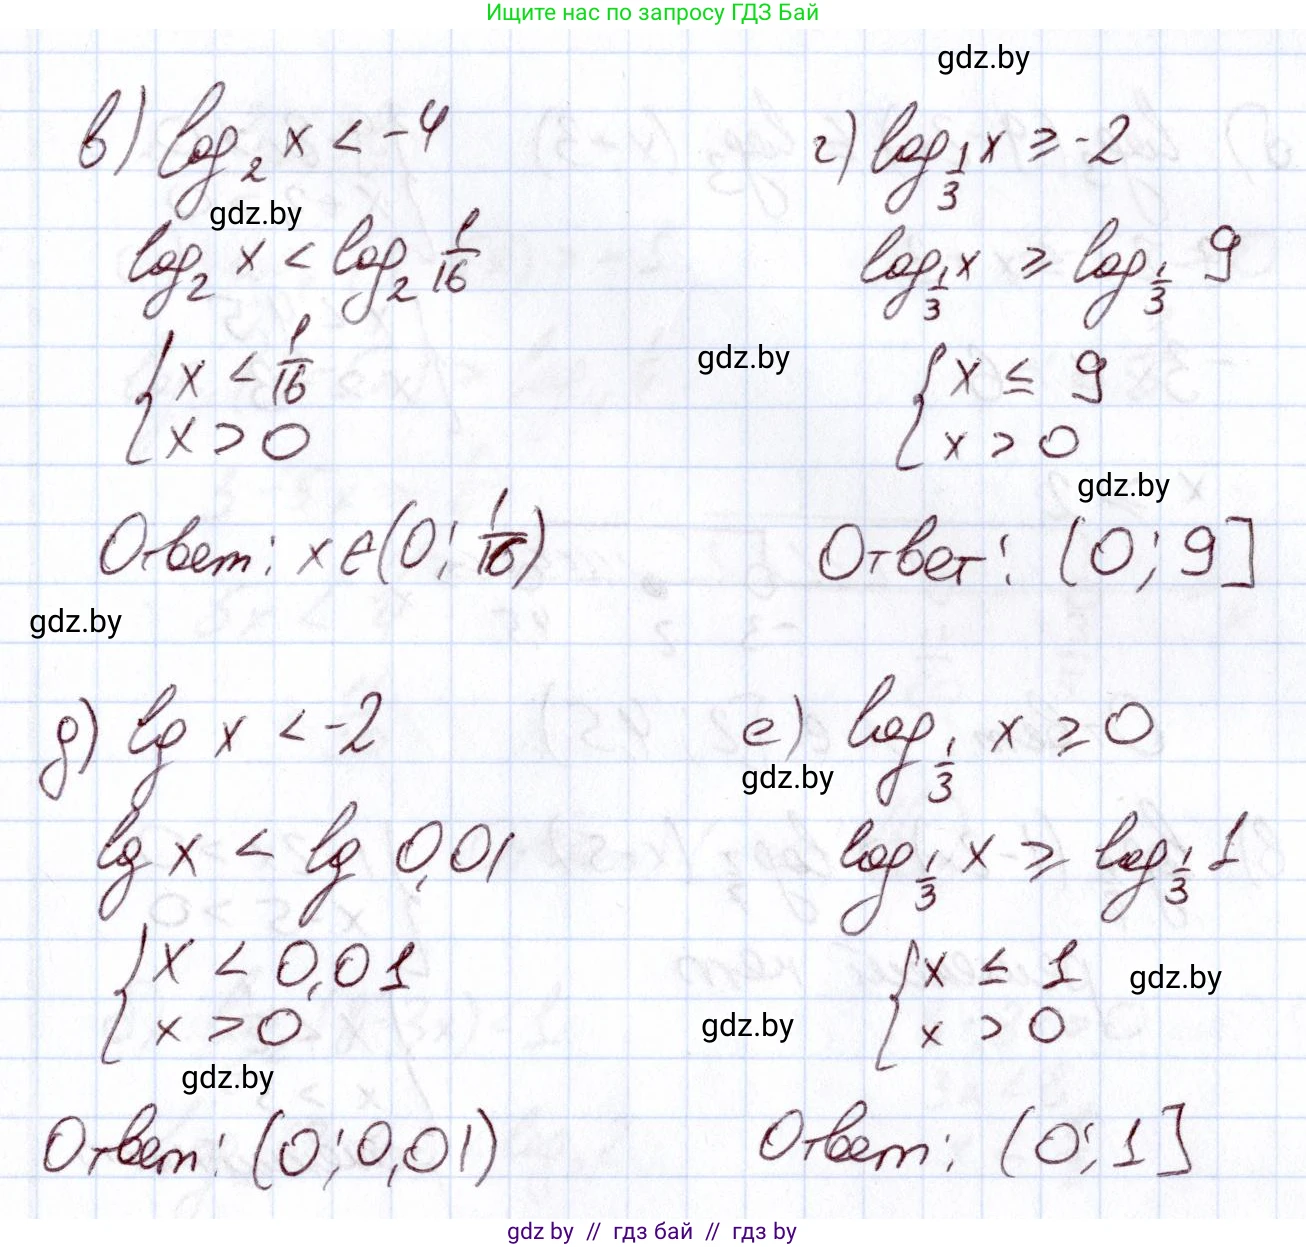 Ищите нас по запросу ГДЗ Бай
gdz.by
в) log₂ x < -4
gdz.by
log₂ x < log₂ 1/16
{ x < 1/16
x > 0
Ответ: x ∈ (0; 1/16)
gdz.by
г) log_{1/3} x ≥ -2
log_{1/3} x ≥ log_{1/3} 9
gdz.by
{ x ≤ 9
x > 0
gdz.by
Ответ: (0; 9]
д) lg x < -2
lg x < lg 0,01
{ x < 0,01
x > 0
gdz.by
Ответ: (0; 0,01)
е) log_{1/3} x ≥ 0
gdz.by
log_{1/3} x ≥ log_{1/3} 1
{ x ≤ 1
gdz.by
x > 0
gdz.by
Ответ: (0; 1]
gdz by // гдз бай // гдз by